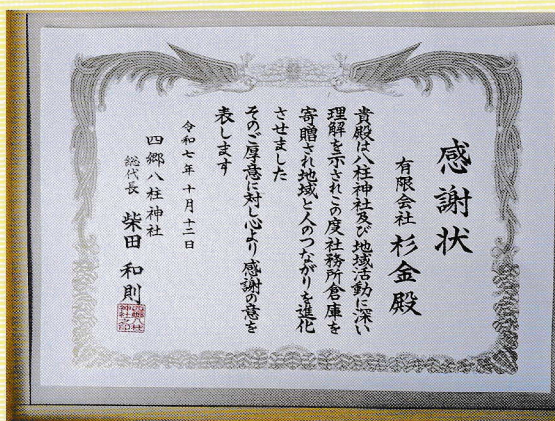 感謝状
有限会社 杉金殿
貴殿は八柱神社及び地域活動に深い
理解を示されこの度社務所倉庫を
寄贈され地域と人のつながりを進化
させました
そのご厚意に対し心より感謝の意を
表します
令和七年 十月 十二日
四郷八柱神社
総代長 柴田 和則
四郷八柱
神社之印